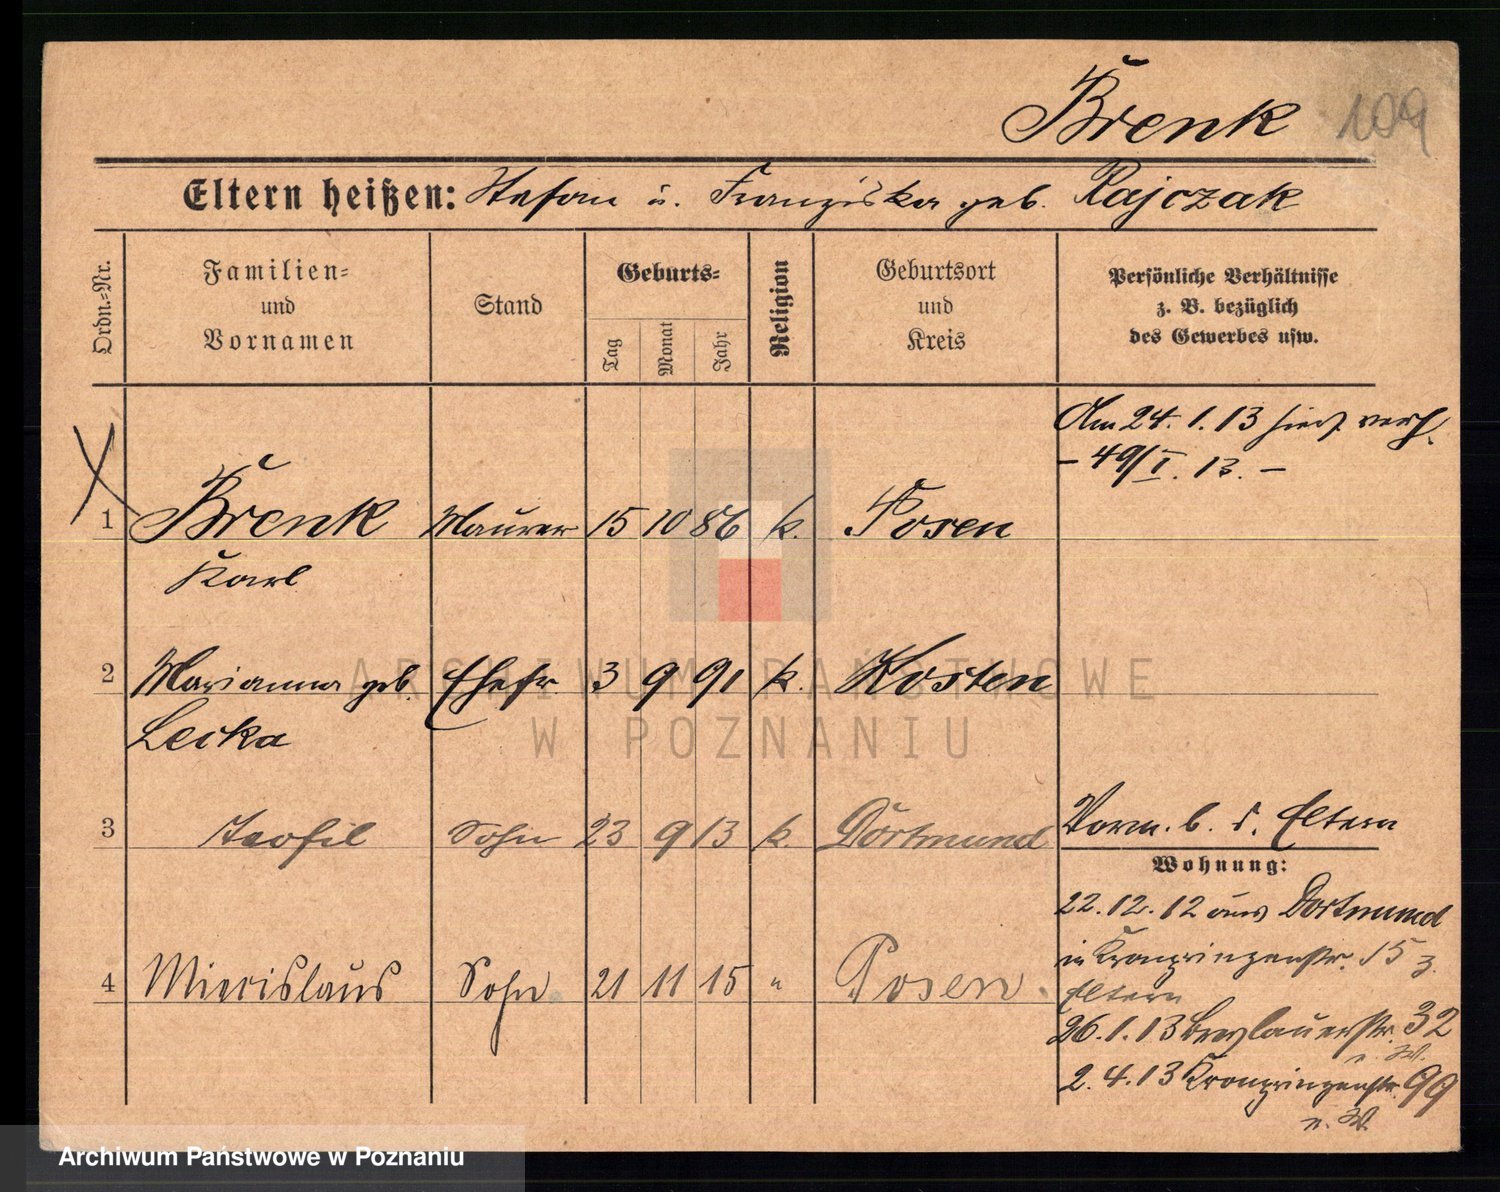 Brenk 109
Eltern heißen: Stefan u. Franziska geb. Rajczak
Ordn.-Nr.
Familien-
und
Vornamen
Stand
Geburts-
Tag
Monat
Jahr
Religion
Geburtsort
und
Kreis
Persönliche Verhältnisse
z. B. bezüglich
des Gewerbes usw.
Am 24. 1. 13 hier verh.
- 49/I. 13. -
1 Brenk Maurer 15 10 86 k. Posen
Karl
2 Marianna geb. Ehefr. 3 9 91 k. Kosten
Lecka
3 Teofil Sohn 23 9 13 k. Dortmund
Vorm. b. d. Eltern
Wohnung:
22.12.12 aus Dortmund
in Kronprinzenstr. 15 z.
Eltern
4 Miecislaus Sohn 21 11 15 " Posen.
26.1.13 Breslauerstr. 32
n. W.
2.4.13 Kronprinzenstr. 99
n. W.
ARCHIWUM PAŃSTWOWE
W POZNANIU
Archiwum Państwowe w Poznaniu